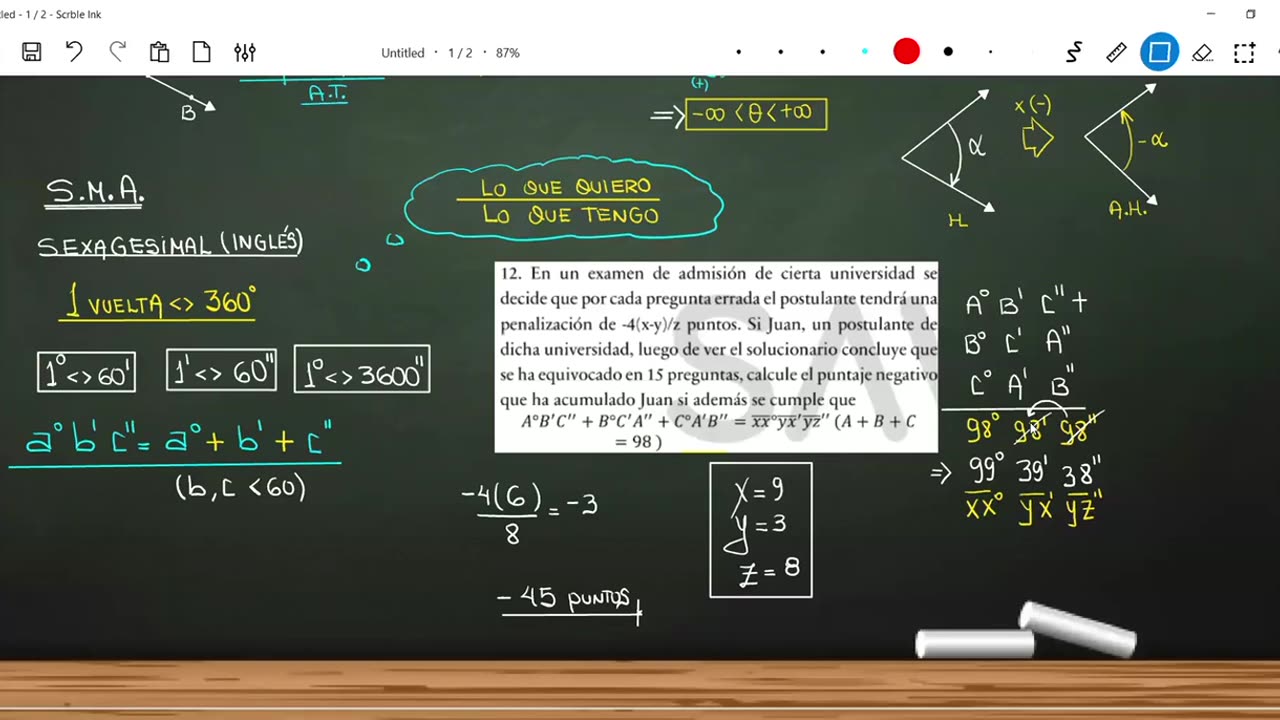 led - 1 / 2 - Scrble Ink
Untitled • 1 / 2 • 87%
B
A.T.
(+)
⇒ -∞ < θ < +∞
α
H
x (-)
-α
A.H.
S.M.A.
LO QUE QUIERO
LO QUE TENGO
SEXAGESIMAL (INGLÉS)
1 VUELTA <> 360°
1° <> 60'
1' <> 60''
1° <> 3600''
a° b' c'' = a° + b' + c''
(b, c < 60)
12. En un examen de admisión de cierta universidad se
decide que por cada pregunta errada el postulante tendrá una
penalización de -4(x-y)/z puntos. Si Juan, un postulante de
dicha universidad, luego de ver el solucionario concluye que
se ha equivocado en 15 preguntas, calcule el puntaje negativo
que ha acumulado Juan si además se cumple que
A°B'C'' + B°C'A'' + C°A'B'' = x̅x̅°y̅x̅'y̅z̅'' (A + B + C
= 98 )
A° B' C'' +
B° C' A''
C° A' B''
98° 98' 98''
⇒ 99° 39' 38''
x̅x̅° y̅x̅' y̅z̅''
-4(6)
8
= -3
- 45 PUNTOS
x = 9
y = 3
z = 8